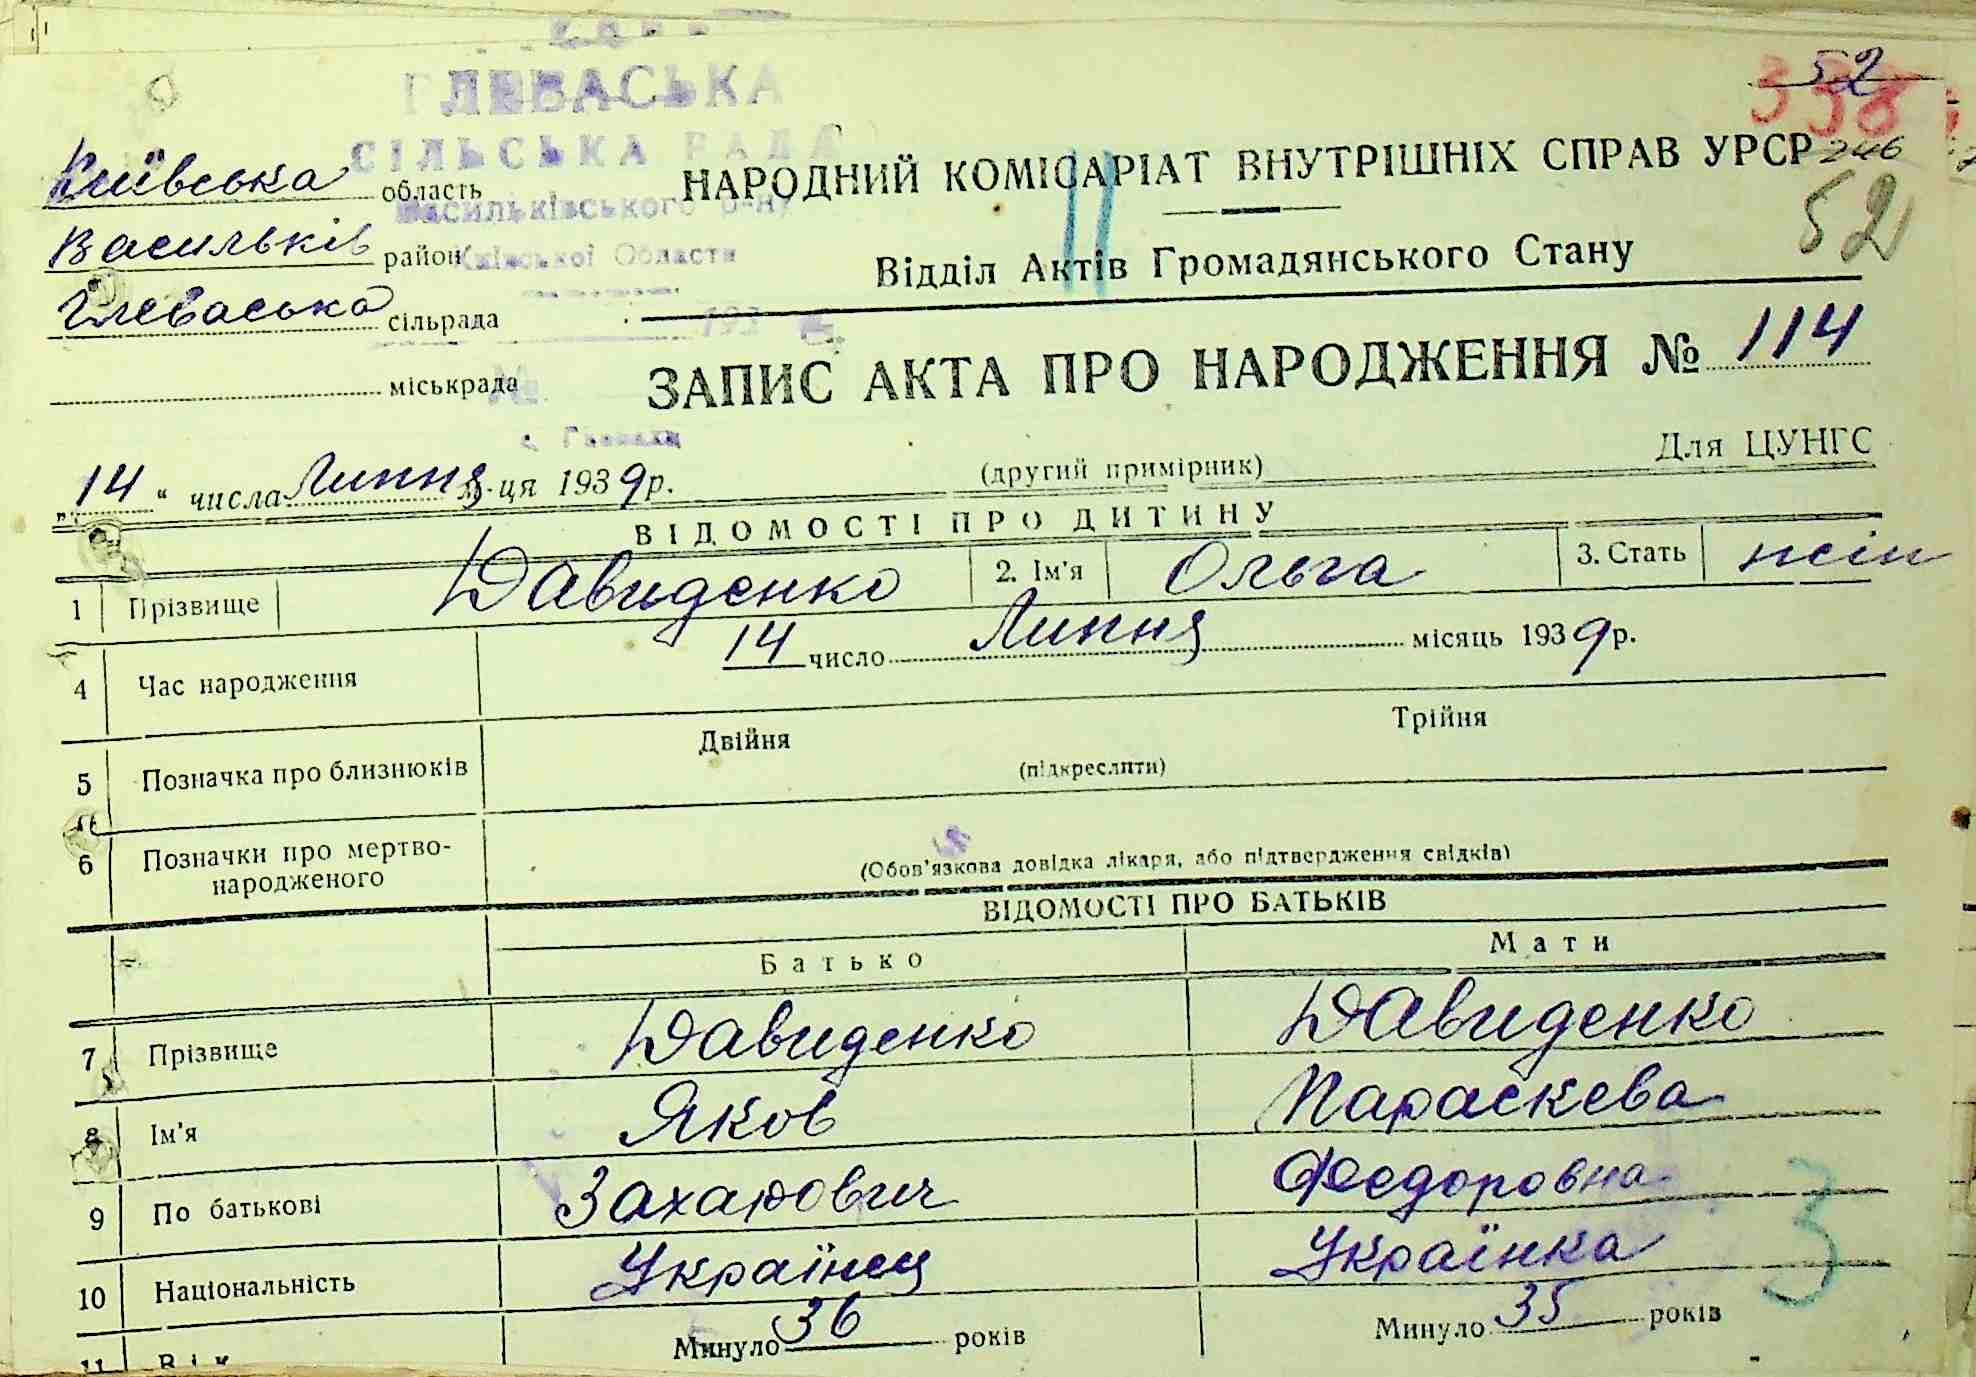 ГЛЕВАСЬКА
СІЛЬСЬКА РАДА
Васильківського р-ну
Київської Области
193
№
с. Глеваха
52
358
246
52
Київська область
Васильків район
Глеваська сільрада
міськрада
НАРОДНИЙ КОМІСАРІАТ ВНУТРІШНІХ СПРАВ УРСР
11
Відділ Актів Громадянського Стану
ЗАПИС АКТА ПРО НАРОДЖЕННЯ № 114
„14“ числа Липня м-ця 1939р. (другий примірник) Для ЦУНГС
ВІДОМОСТІ ПРО ДИТИНУ
1 Прізвище Давиденко 2. Ім'я Ольга 3. Стать жін
4 Час народження 14 число Липня місяць 1939р.
5 Позначка про близнюків Двійня Трійня
(підкреслити)
6 Позначки про мертво-
народженого (Обов'язкова довідка лікаря, або підтвердження свідків)
ВІДОМОСТІ ПРО БАТЬКІВ
Батько Мати
7 Прізвище Давиденко Давиденко
8 Ім'я Яков Параскева
9 По батькові Захарович Федоровна
10 Національність Українец Українка
3
11 Вік Минуло 36 років Минуло 35 років